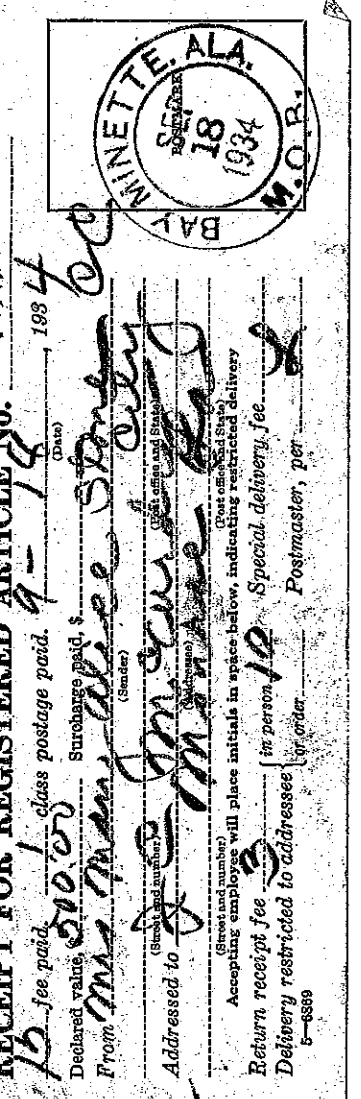 RECEIPT FOR REGISTERED ARTICLE No.
15 fee paid. 1 class postage paid. 9 - 18, 1934
(Date)
Declared value, $500.00 Surcharge paid, $
From Mrs Mary Alice Stone
(Sender)
City
(Street and number) (Post office and State)
Addressed to
(Addressee)
(Street and number) (Post office and State)
Accepting employee will place initials in space below, indicating restricted delivery
Return receipt fee 3 Special delivery fee
Delivery restricted to addressee { in person
or order Postmaster, per
5—6869
BAY MINETTE, ALA.
SEP
POSTMARK
18
1934
M.O.B.